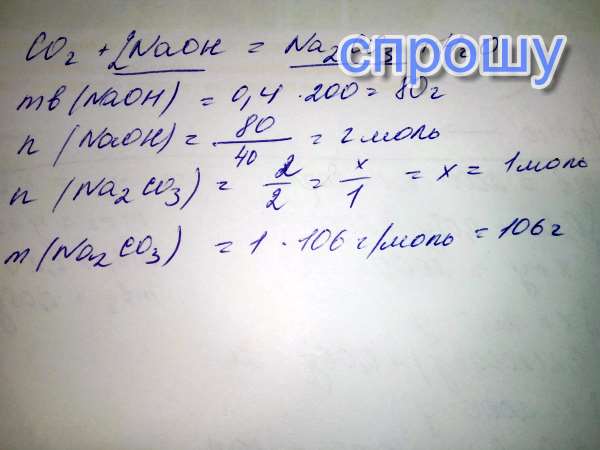 CO2 + 2NaOH = Na2CO3
спрошу
mв (NaOH) = 0,4 · 200 = 80г
n (NaOH) = 80/40 = 2 моль
n (Na2CO3) = 2/2 = x/1 = x = 1 моль
m (Na2CO3) = 1 · 106 г/моль = 106г